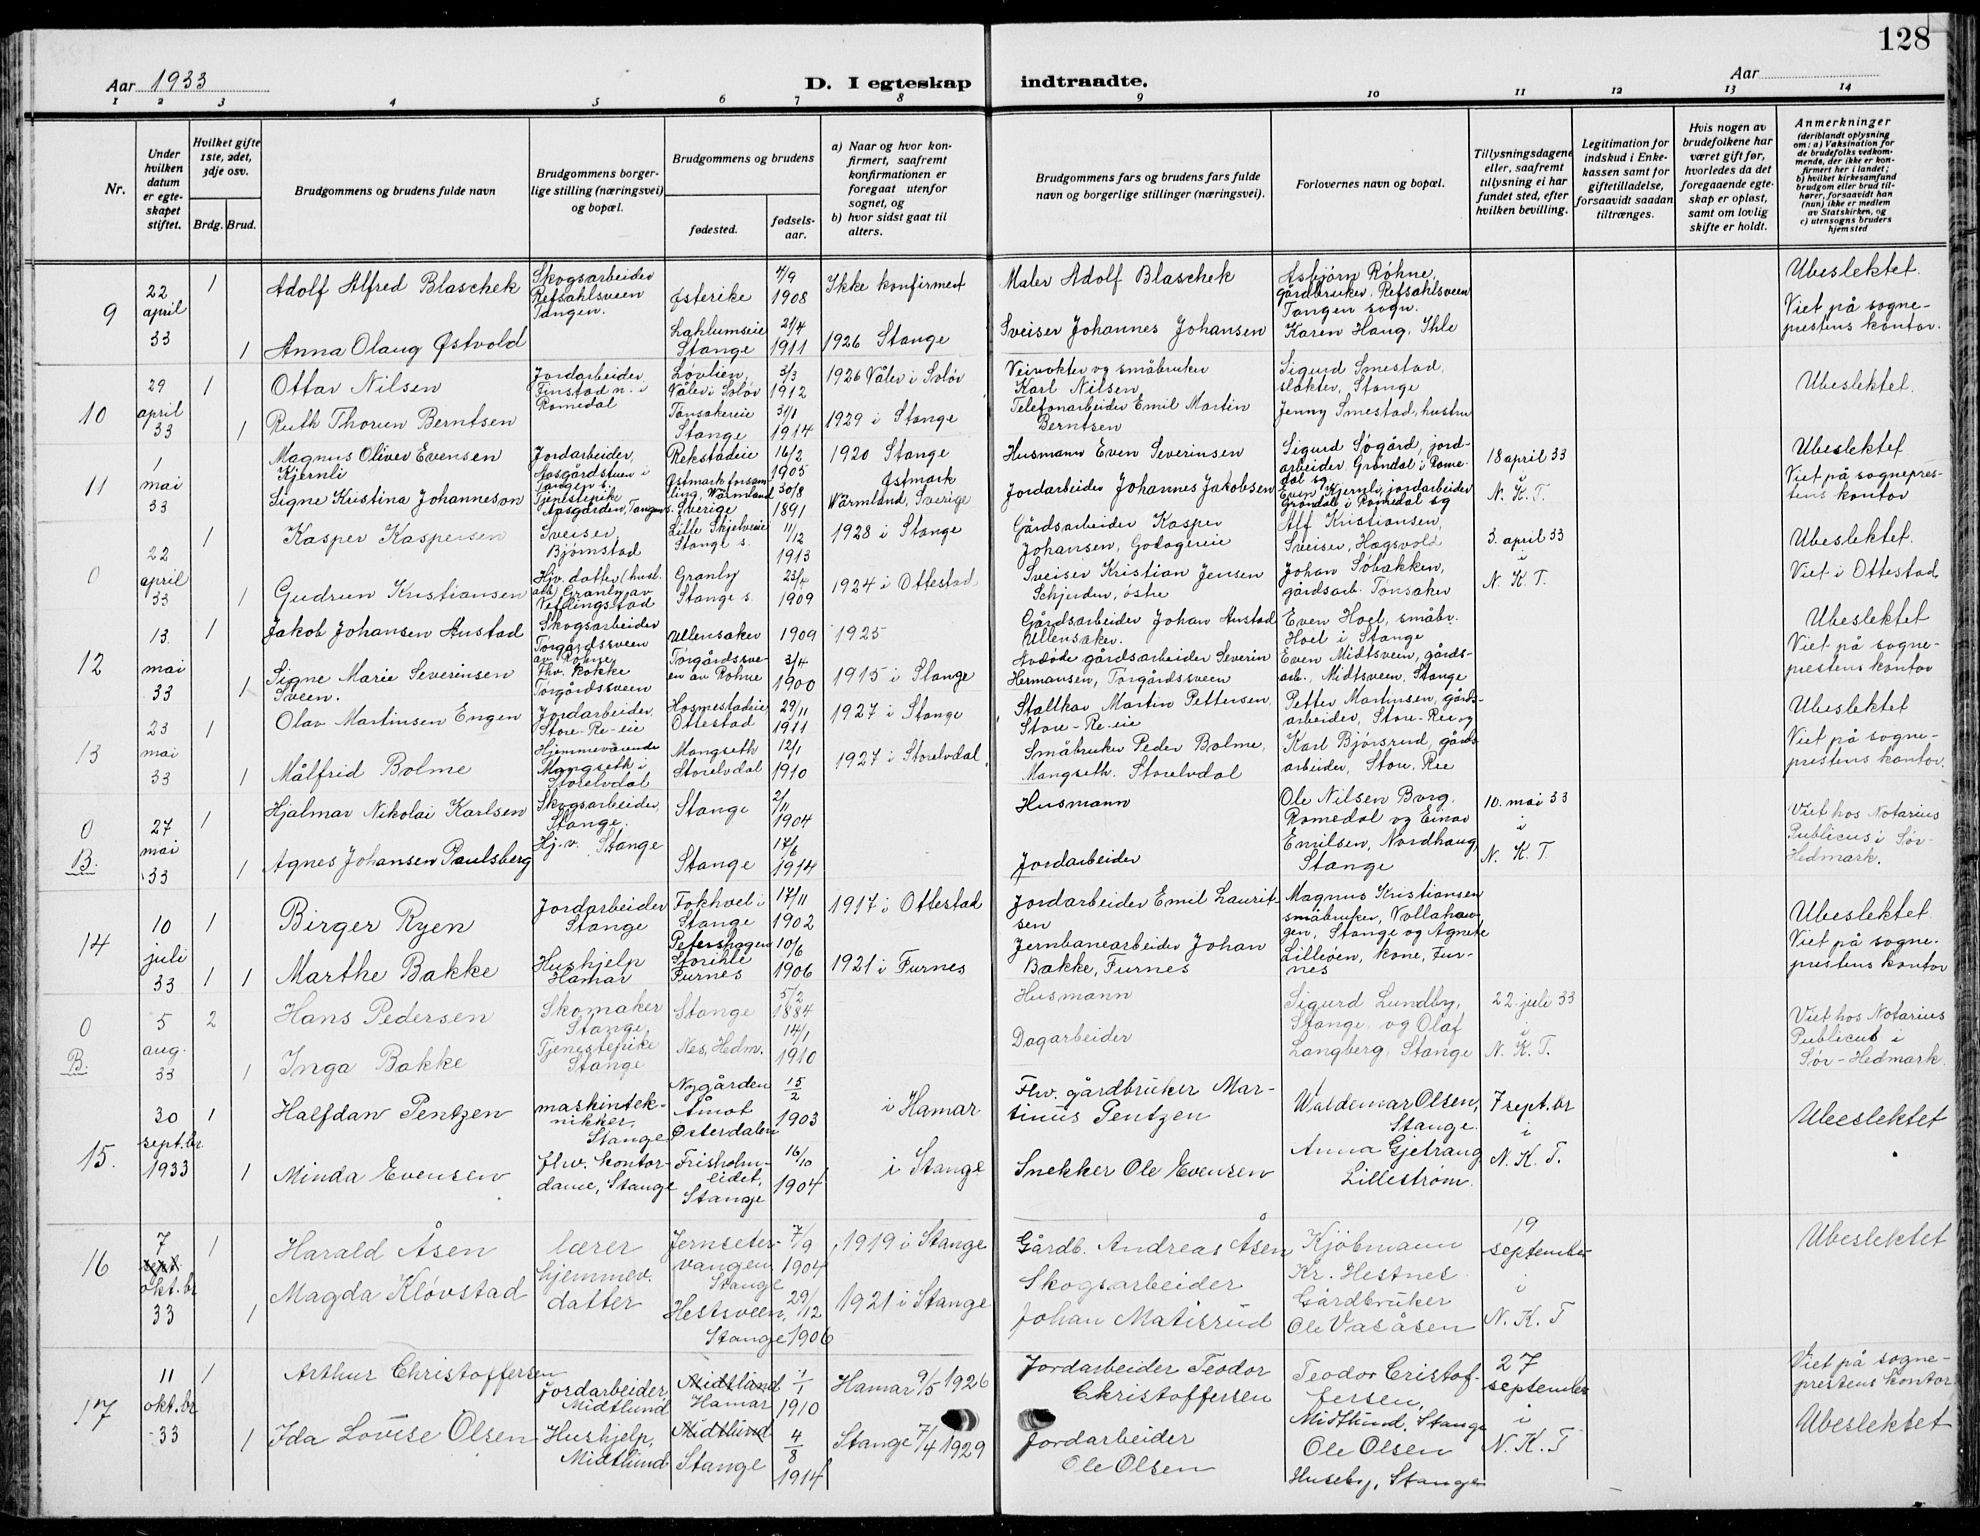 128
Aar 1933
D. I egteskap indtraadte.
Aar
1 2 3 4 5 6 7 8 9 10 11 12 13 14
Nr.
Under hvilken datum er egteskapet stiftet.
Hvilket gifte 1ste, 2det, 3dje osv.
Brdg. Brud.
Brudgommens og brudens fulde navn
Brudgommens borgerlige stilling (næringsvei) og bopæl.
Brudgommens og brudens
fødested.
fødselsaar.
a) Naar og hvor konfirmert, saafremt konfirmationen er foregaat utenfor sognet, og
b) hvor sidst gaat til alters.
Brudgommens fars og brudens fars fulde navn og borgerlige stillinger (næringsvei).
Forlovernes navn og bopæl.
Tillysningsdagene eller, saafremt tillysning ei har fundet sted, efter hvilken bevilling.
Legitimation for indskud i Enkekassen samt for giftetilladelse, forsaavidt saadan tiltrænges.
Hvis nogen av brudefolkene har været gift før, hvorledes da det foregaaende egteskap er opløst, samt om lovlig skifte er holdt.
Anmerkninger
(deriblandt oplysning om: a) Vaksination for de brudefolks vedkommende, der ikke er konfirmert her i landet; b) hvilket kirkesamfund brudgom eller brud tilhører, forsaavidt han (hun) ikke er medlem av Statskirken, og c) utensogns bruders hjemsted
9
22 april 33
1
Adolf Alfred Blaschek
Skogsarbeider Refsahlsveen Tangen.
Østerike
4/9 1908
Ikke konfirmert
Maler Adolf Blaschek
Asbjørn Røhne, gårdbruker, Refsahlsveen Tangen sogn.
Ubeslektet.
1
Anna Olaug Østvold
Lahlumseie Stange
21/4 1911
1926 Stange
Sveiser Johannes Johansen
Karen Haug, Ihle
Viet på sogneprestens kontor.
10
29 april 33
1
Ottar Nilsen
Jordarbeider, Finstad n. i Romedal
Løvlien, Våler i Solør
3/3 1912
1926 Våler i Solør
Veivokter og småbruker Karl Nilsen
Sigurd Smestad, slakter, Stange
Ubeslektet.
1
Ruth Thorun Berntsen
Tønsakereie Stange
31/1 1914
1929 i Stange
Telefonarbeider Emil Martin Berntsen
Jenny Smestad, hustru
11
1 mai 33
Magnus Oliver Evensen Kjernli
Jordarbeider, Aasgårdstuen i Tangen s.
Rekstadeie
16/2 1905
1920 Stange
Husmann Even Severinsen
Sigurd Søgård, jordarbeider, Grøndal i Romedal sg
18 april 33
i
N. K. T.
Ubeslektet
Signe Kristina Johanneson
Tjenestepike Aasgården, Tangen s.
Østmark forsamling, Wärmland Sverige
30/8 1891
Østmark Wärmland, Sverige
Jordarbeider Johannes Jakobsen
Even Kjernli, jordarbeider Grøndal i Romedal sg
Viet på sogneprestens kontor
0
22 april 33
1
Kasper Kaspersen
Sveiser, Bjørnstad
Lille Skjelveie Stange s.
11/12 1913
1928 i Stange
Gårdsarbeider Kasper Johansen, Godagereie
Alf Kristiansen, Sveiser, Hægsvold
3. april 33
i
N. K T.
Ubeslektet.
1
Gudrun Kristiansen
Hjv. datter (husl. arb) Granly av Veflingstad
Granly Stange s.
23/4 1909
1924 i Ottestad
Sveiser Kristian Jensen Schjerden, østre
Johan Søbakken, gårdsarb. Tønsaker
Viet i Ottestad
12
13. mai 33
1
Jakob Johansen Austad
Skogsarbeider Torgårdssveen av Rohne
Ullensaker
1909
1925
Gårdsarbeider Johan Austad Ullensaker.
Even Hoel, småbr. Hoel i Stange
Ubeslektet
1
Signe Marie Severinsen Sveen.
Fhv. kokke Torgårdssveen
Torgårdssveen av Rohne
3/4 1900
1915 i Stange
Avdøde gårdsarbeider Severin Hermansen, Torgårdssveen
Even Midtsveen, gårdsarb., Midtsveen, Stange
Viet på sogneprestens kontor
13
23 mai 33
1
Olav Martinsen Engen
Jordarbeider, Store-Re-eie
Hosmestadeie Ottestad
29/11 1911
1927 i Stange
Stallkar Martin Pettersen, Store-Re-eie
Petter Martinsen, gårdsarbeider, Store-Ree og
Ubeslektet
1
Målfrid Bolme
Hjemmeværende Mangseth i Storelvdal
Mangseth Storelvdal
12/1 1910
1927 i Storelvdal
Småbruker Peder Bolme, Mangseth. Storelvdal
Karl Bjørsrud, gårdsarbeider, Store. Ree
Viet på sogneprestens kontor.
0
B.
27 mai 33
1
Hjalmar Nikolai Karlsen
Skogsarbeider, Stange.
Stange
2/11 1904
Husmann
Ole Nilsen Borg, Romedal og Einar Emilsen, Nordhaug Stange
10. mai 33
i
N. K. T.
Viet hos Notarius Publicus i Sør-Hedmark.
1
Agnes Johansen Paulsberg
Hj.v. Stange
Stange
17/6 1914
Jordarbeider
14
10 juli 33
1
Birger Ryen
Jordarbeider Stange
Fokhvel i Stange
17/11 1902
1917 i Ottestad
Jordarbeider Emil Lauritsen
Magnus Kristiansen småbruker, Vollahaugen, Stange og Agnete Lilleøen, kone, Furnes
Ubeslektet.
1 1
Marthe Bakke
Hushjelp Hamar
Petershagen Storihle Furnes
10/6 1906
1921 i Furnes
Jernbanearbeider Johan Bakke, Furnes
Viet på sogneprestens kontor
0
B.
5 aug. 33
2
Hans Pedersen
Skomaker Stange
Stange
5/2 1884
Husmann
Sigurd Lundby, Stange og Olaf Langberg, Stange
22. juli 33
i
N. K. T.
Viet hos Notarius Publicus i Sør-Hedmark.
1
Inga Bakke
Tjenestepike Stange
Nes, Hedm.
14/1 1910
Dagarbeider
15.
30 sept.br 1933
1
Halfdan Pentzen
maskinteknikker, Stange
Nygården Åmot Østerdalen
15/2 1903
i Hamar
Fhv. gårdbruker Martinus Pentzen
Waldemar Olsen, Stange.
7 sept.br
i
N. K. T.
Ubeslektet
1
Minda Evensen
fhv. kontordame, Stange
Frisholmeidet, Stange
16/10 1904
i Stange
Snekker Ole Evensen
Anna Gjetrang Lillestrøm.
16
7 sept. okt.br 33
1
Harald Åsen
lærer
Jernsetervangen Stange
7/9 1904
1919 i Stange
Gårdb. Andreas Åsen
Kjøbmann Kr. Hestnes
19 september
i
N. K. T
Ubeslektet
1
Magda Kløvstad
hjemmev. datter
Hestsveen, Stange
29/12 1906
1921 i Stange
Skogsarbeider Johan Matisrud
Gårdbruker Ole Vasåsen
17
11 okt.br 33
1
Arthur Christoffersen
Jordarbeider, Midtlund
Midtlund Hamar
1/1 1910
Hamar 9/5 1926
Jordarbeider Teodor Christoffersen
Teodor Cristoffersen, Midtlund, Stange
27 september
i
N. K. T
Viet på sogneprestens kontor
1
Ida Lovise Olsen
Hushjelp, Midtlund
Midtlund Stange
4/8 1914
Stange 7/4 1929
Jordarbeider Ole Olsen
Ole Olsen Huseby, Stange
Ubeslektet